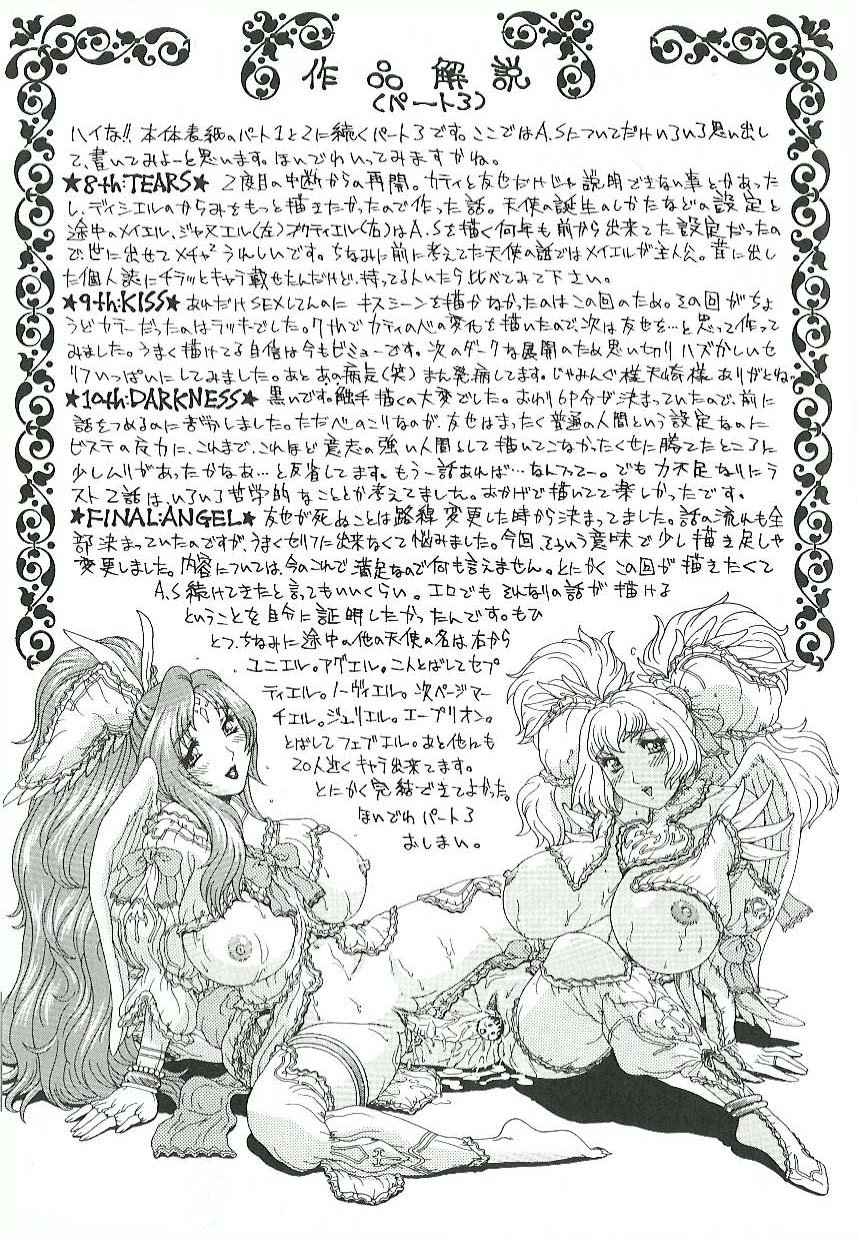 作品解説
(パート3)
ハイな!! 本体表紙のパート1と2に続くパート3です。ここではA.Sについてだけいろいろ思い出し
て、書いてみよーと思います。ほいでわいってみますかね。
★8th:TEARS★ 2度目の中断からの再開。カティと友也だけじゃ説明できない事とかあった
し、ディシエルのからみをもっと描きたかったので作った話。天使の誕生のしかたなどの設定と
途中のメイエル、ジャヌエル(左)オクティエル(右)はA.Sを描く何年も前から出来てた設定だったの
で、世に出せてメチャ²うれしいです。ちなみに前に考えてた天使の話ではメイエルが主人公。昔に出し
た個人誌にチラッとキャラ載せたんだけど、持ってる人いたら比べてみて下さい。
★9th:KISS★ あれだけSEXしてんのに キスシーンを描かなかったのはこの回のため。その回がちょ
うどカラーだったのはラッキでした。7thでカティの心の変化を描いたので、次は友也を…と思って作って
みました。うまく描けてる自信は今もビミョーです。次のダークな展開のため思い切りハズかしいセ
リフいっぱいにしてみました。あとあの病気(笑)また発病してます。じゃみんぐ様天崎様ありがとね
★10th:DARKNESS★ 黒いです。触手描くの大変でした。おわり6P分が決まっていたので、前に
話をつめるのに苦労しました。ただ心のこりなのが、友也はまったく普通の人間という設定なのに
ビステの反力に、これまで、これほど意志の強い人間として描いてこなかったくせに勝てたところに
少しムリがあったかなあ…と反省してます。もう一話あれば…なんつってー。でも力不足なりにラ
スト2話は、いろいろ哲学的なこととか考えてました。おかげで描いてて楽しかったです。
★FINAL:ANGEL★ 友也が死ぬことは路線変更した時から決まってました。話の流れも全
部決まっていたのですが、うまくセリフに出来なくて悩みました。今回、そういう意味で少し描き足しや
変更しました。内容については、今のこれで満足なので何も言えません。とにかくこの回が描きたくて
A.S続けてきたと言ってもいいくらい。エロでもそんなりの話が描ける
ということを自分に証明したかったんです。もひ
とつ、ちなみに途中の他の天使の名は右から
ユニエル。アグエル。二人とばしてセプ
ティエル。ノーヴィエル。次ページマー
チエル。ジュリエル。エープリオン。
とばしてフェブエル。あと他にも
20人近くキャラ出来てます。
とにかく完結できてよかった。
ほいでわパート3
おしまい。